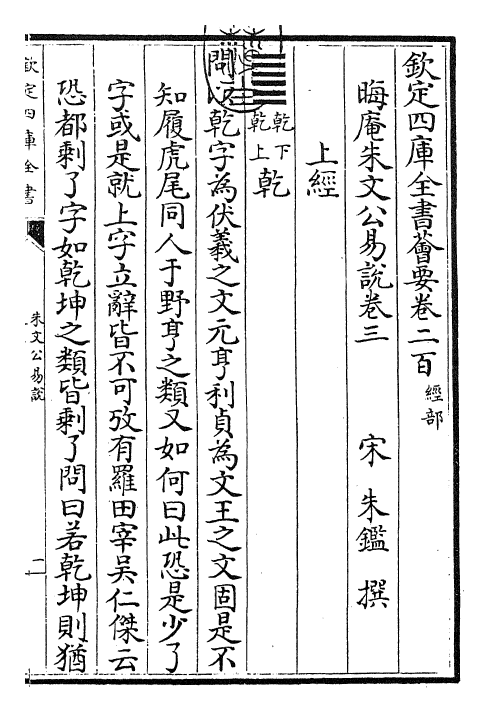 欽定四庫全書薈要卷二百 經部
晦庵朱文公易説卷三 宋 朱鑑 撰
上經
乾下
乾上 乾
問 乾字為伏羲之文元亨利貞為文王之文固是不
知履虎尾同人于野亨之類又如何曰此恐是少了
字或是就上字立辭皆不可攷有羅田宰吳仁傑云
恐都剩了字如乾坤之類皆剩了問曰若乾坤則猶
欽定四庫全書
朱文公易說